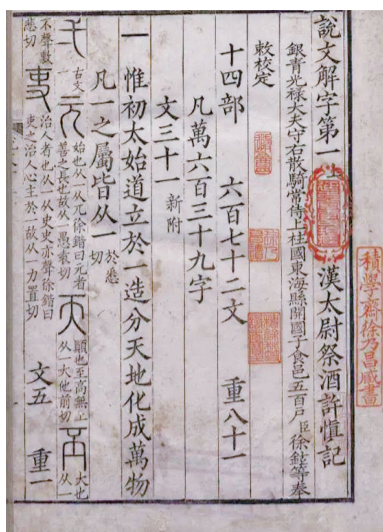 積學齋徐乃昌臧書
說文解字第一上 漢太尉祭酒許慎記
銀青光祿大夫守右散騎常侍上柱國東海縣開國子食邑五百戶臣徐鉉等奉
敕校定
十四部 六百七十二文 重八十一
凡萬六百三十九字
文三十一 新附
一 惟初太始道立於一造分天地化成萬物
凡一之屬皆从一 於悉切
弌 古文一 元 始也从一从兀徐鍇曰元者善之長也故从一愚袁切 天 顚也至高無上从一大他前切 丕 大也从一
不聲敷悲切 吏 治人者也从一从史史亦聲徐鍇曰吏之治人心主於一故从一力置切 文五 重一